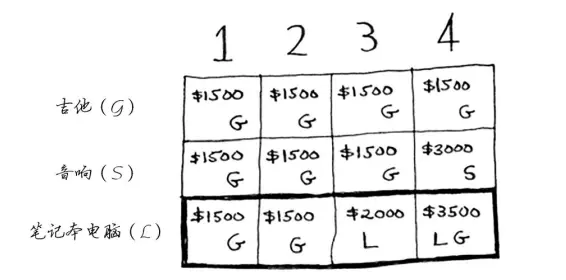 1 2 3 4
吉他(G) $1500 G $1500 G $1500 G $1500 G
音响(S) $1500 G $1500 G $1500 G $3000 S
笔记本电脑(L) $1500 G $1500 G $2000 L $3500 L G